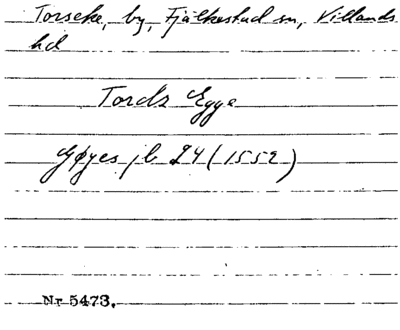 Torseke, by, Fjälkestad sn, Villands
hd
Tords Egge
Gøyes jb 24 (1552)
Nr 5473.